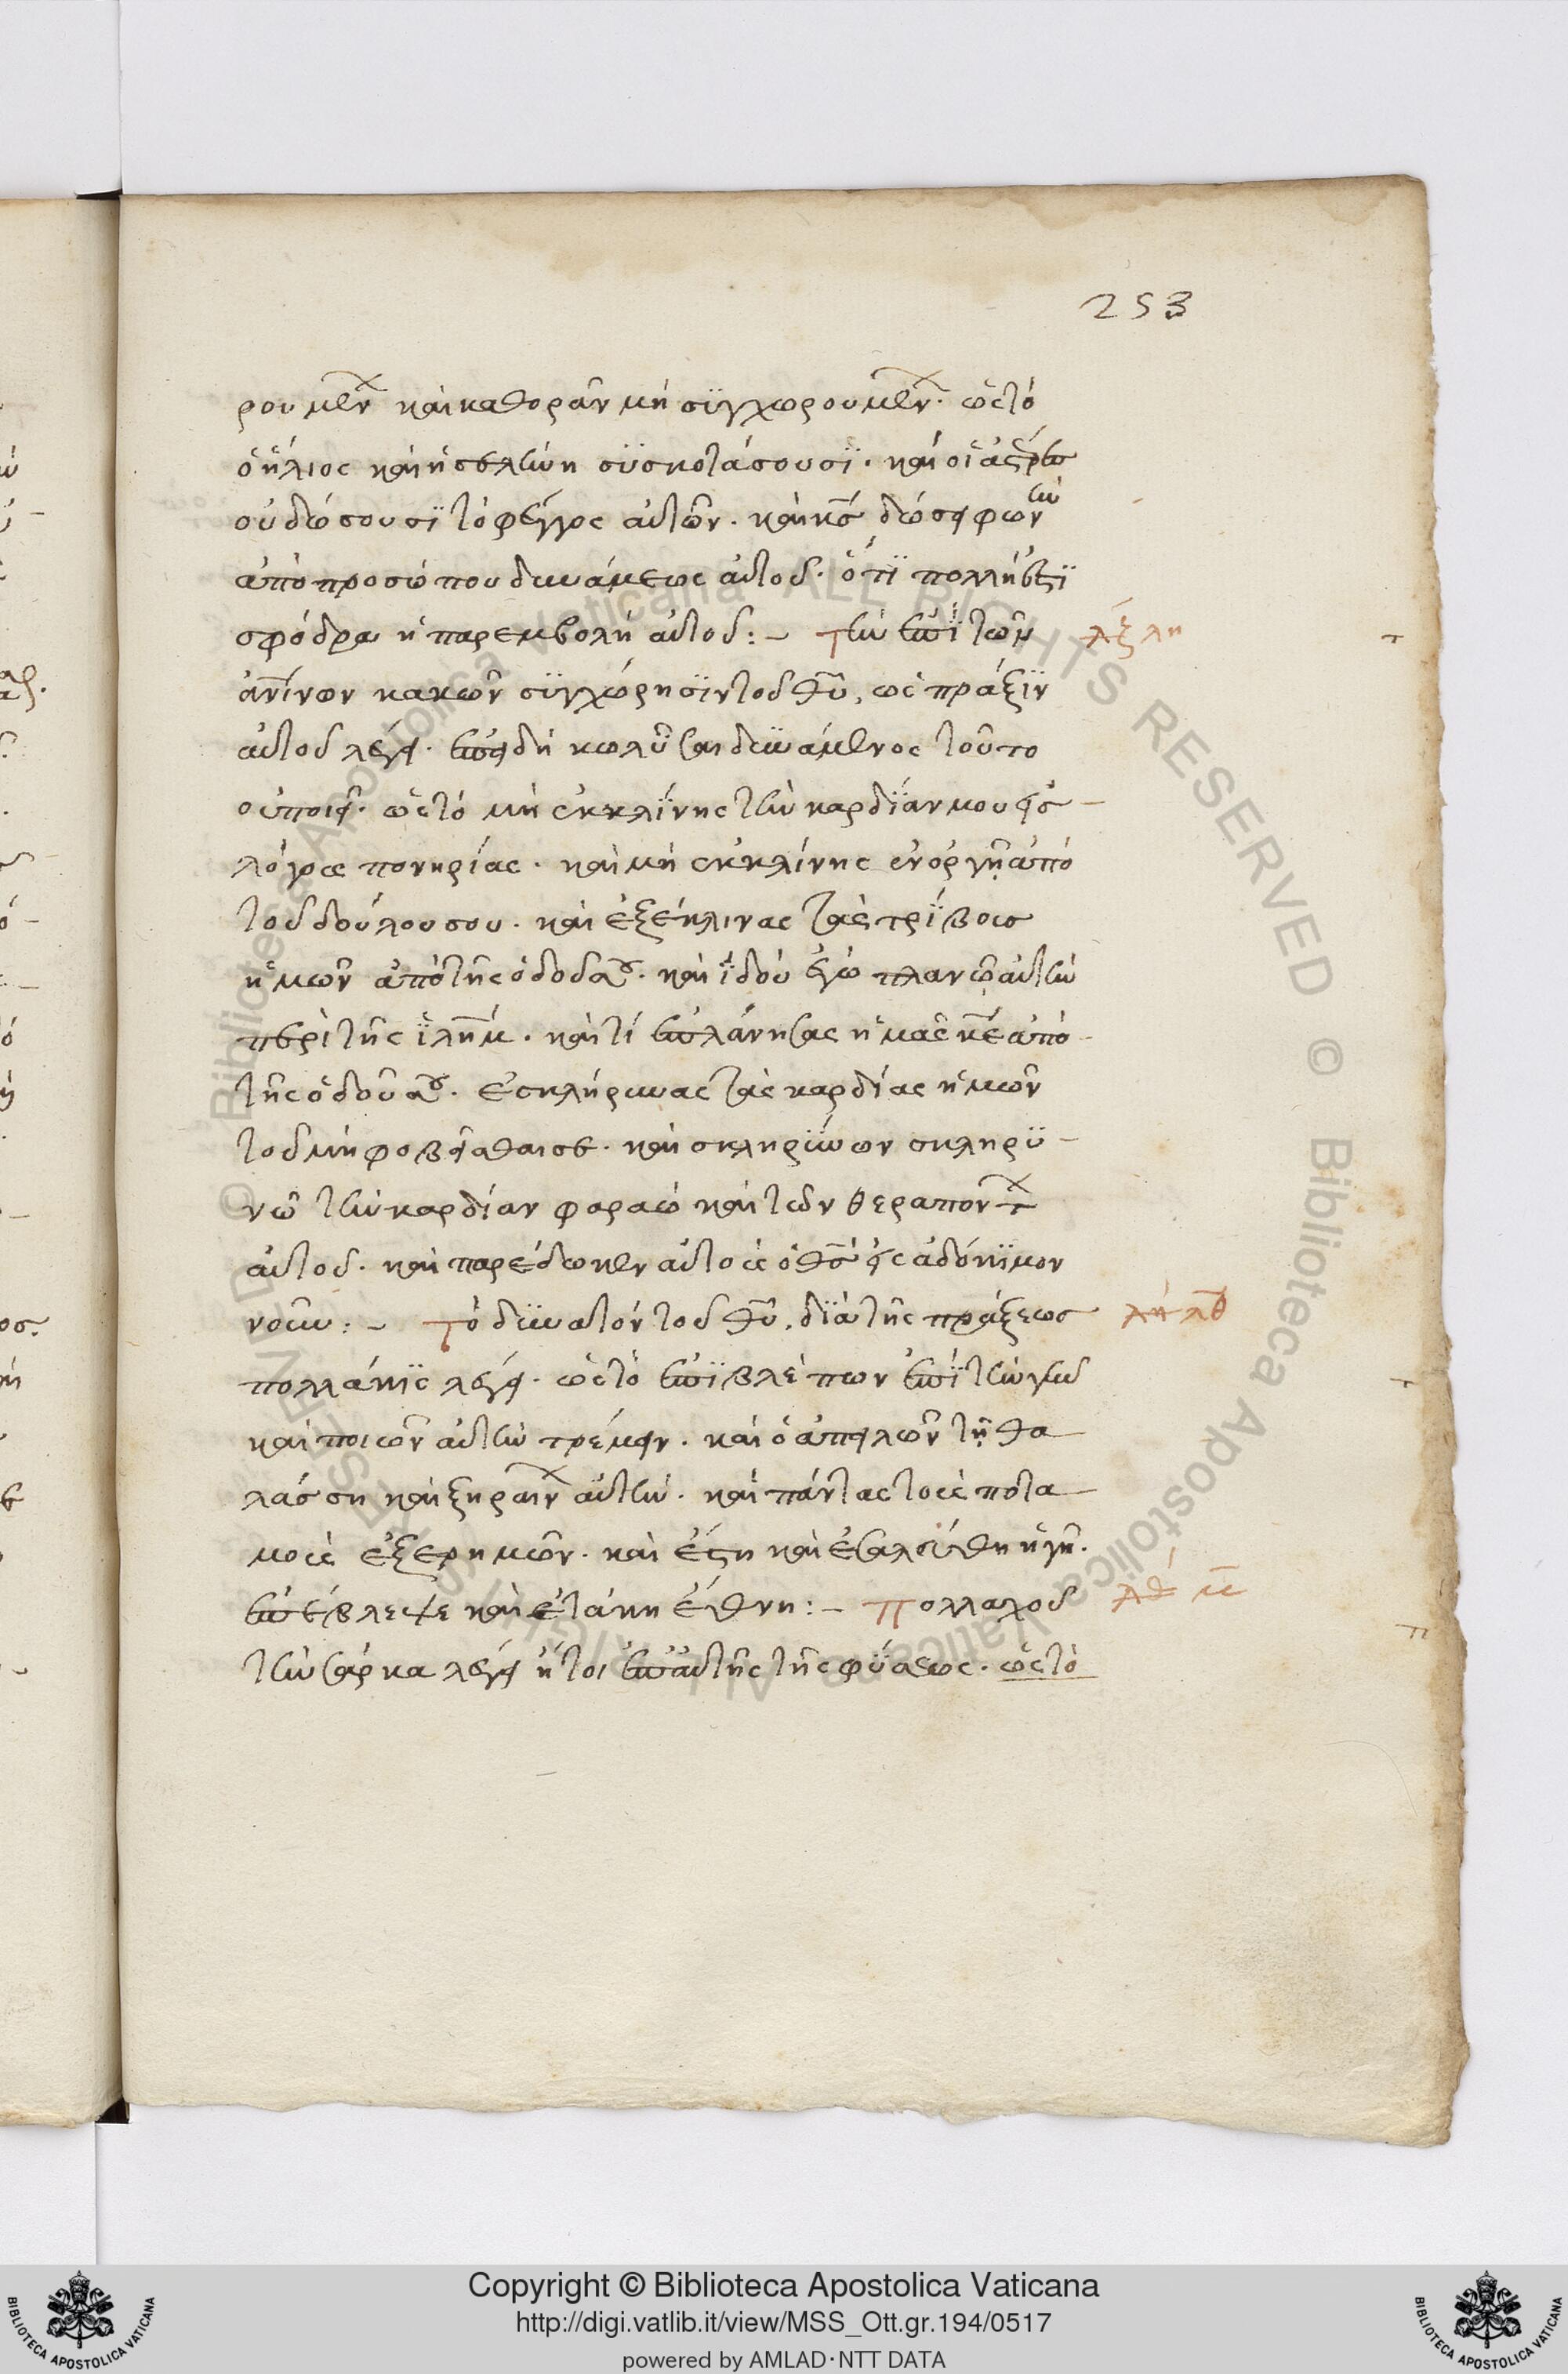 253
ρουμεν καὶ καθορᾶν μὴ συγχωρουμεν. ὡς τὸ
ὁ ἥλιος καὶ ἡ σελήνη συσκοτάσουσϊ. καὶ οἱ ἀστέρες
οὐ δώσουσϊ τὸ φέγγος αὐτῶν. καὶ κσ̄ δώσει φωνὴν
ἀπὸ προσώπου δυνάμεως αὐτοῦ. ὅτϊ πολλή ἐστϊ
σφόδρα ἡ παρεμβολὴ αὐτοῦ:– Τὴν ἐπὶ τῶν λζ λη
ἀνίνων κακῶν συγχώρησϊν τοῦ θῡ, ὡς πρᾶξϊν
αὐτοῦ λέγει. ἐπειδὴ κωλῦσαι δυνάμενος τοῦτο
οὐ ποιεῖ. ὡς τὸ μὴ ἐκκλίνης τὴν καρδίαν μου εἰς –
λόγους πονηρίας. καὶ μὴ ἐκκλίνης ἐν ὀργῇ ἀπὸ
τοῦ δούλου σου. καὶ ἐξέκλινας τὰς τρίβους
ἡμῶν ἀπὸ τῆς ὁδοῦ σου. καὶ ἰδοὺ ἐγὼ πλανῶ αὐτὴν
περὶ τῆς ϊλημ̄. καὶ τί ἐπλάνησας ἡμᾶς κε̄ ἀπὸ –
τῆς ὁδοῦ σου. ἐσκλήρυνας τὰς καρδίας ἡμῶν
τοῦ μὴ φοβεῖσθαι σε. καὶ σκληρύνων σκληρυ –
νῶ τὴν καρδίαν φαραὼ καὶ τῶν θεραποντ
αὐτοῦ. καὶ παρέδωκεν αὐτοὺς ὁ θσ̄ εἰς ἀδόκϊμον
νοῦν:– Τὸ δυνατὸν τοῦ θῡ, διὰ τῆς πράξεως λη λθ
πολλάκϊς λέγει. ὡς τὸ ἐπϊβλέπων ἐπὶ τὴν γῆν
καὶ ποιῶν αὐτὴν τρέμειν. καὶ ὁ ἀπειλῶν τῇ θα
λάσση καὶ ξηραιν αὐτήν. καὶ πάντας τοὺς ποτα
μοὺς ἐξερημῶν. καὶ ἔστη καὶ ἐσαλεύθη ἡ γῆ.
ἐπέβλεψε καὶ ἐτάκη ἔθνη:– Πολλαχοῦ λθ μ
τὴν σάρκα λέγει ἤτοι ἐπ' αὐτῆς τῆς φύσεως. ὡς τὸ
© Biblioteca Apostolica Vaticana ALL RIGHTS RESERVED © Biblioteca Apostolica Vaticana ALL RIGHTS RESERVED
Copyright © Biblioteca Apostolica Vaticana
http://digi.vatlib.it/view/MSS_Ott.gr.194/0517
powered by AMLAD·NTT DATA
BIBLIOTECA APOSTOLICA VATICANA
BIBLIOTECA APOSTOLICA VATICANA